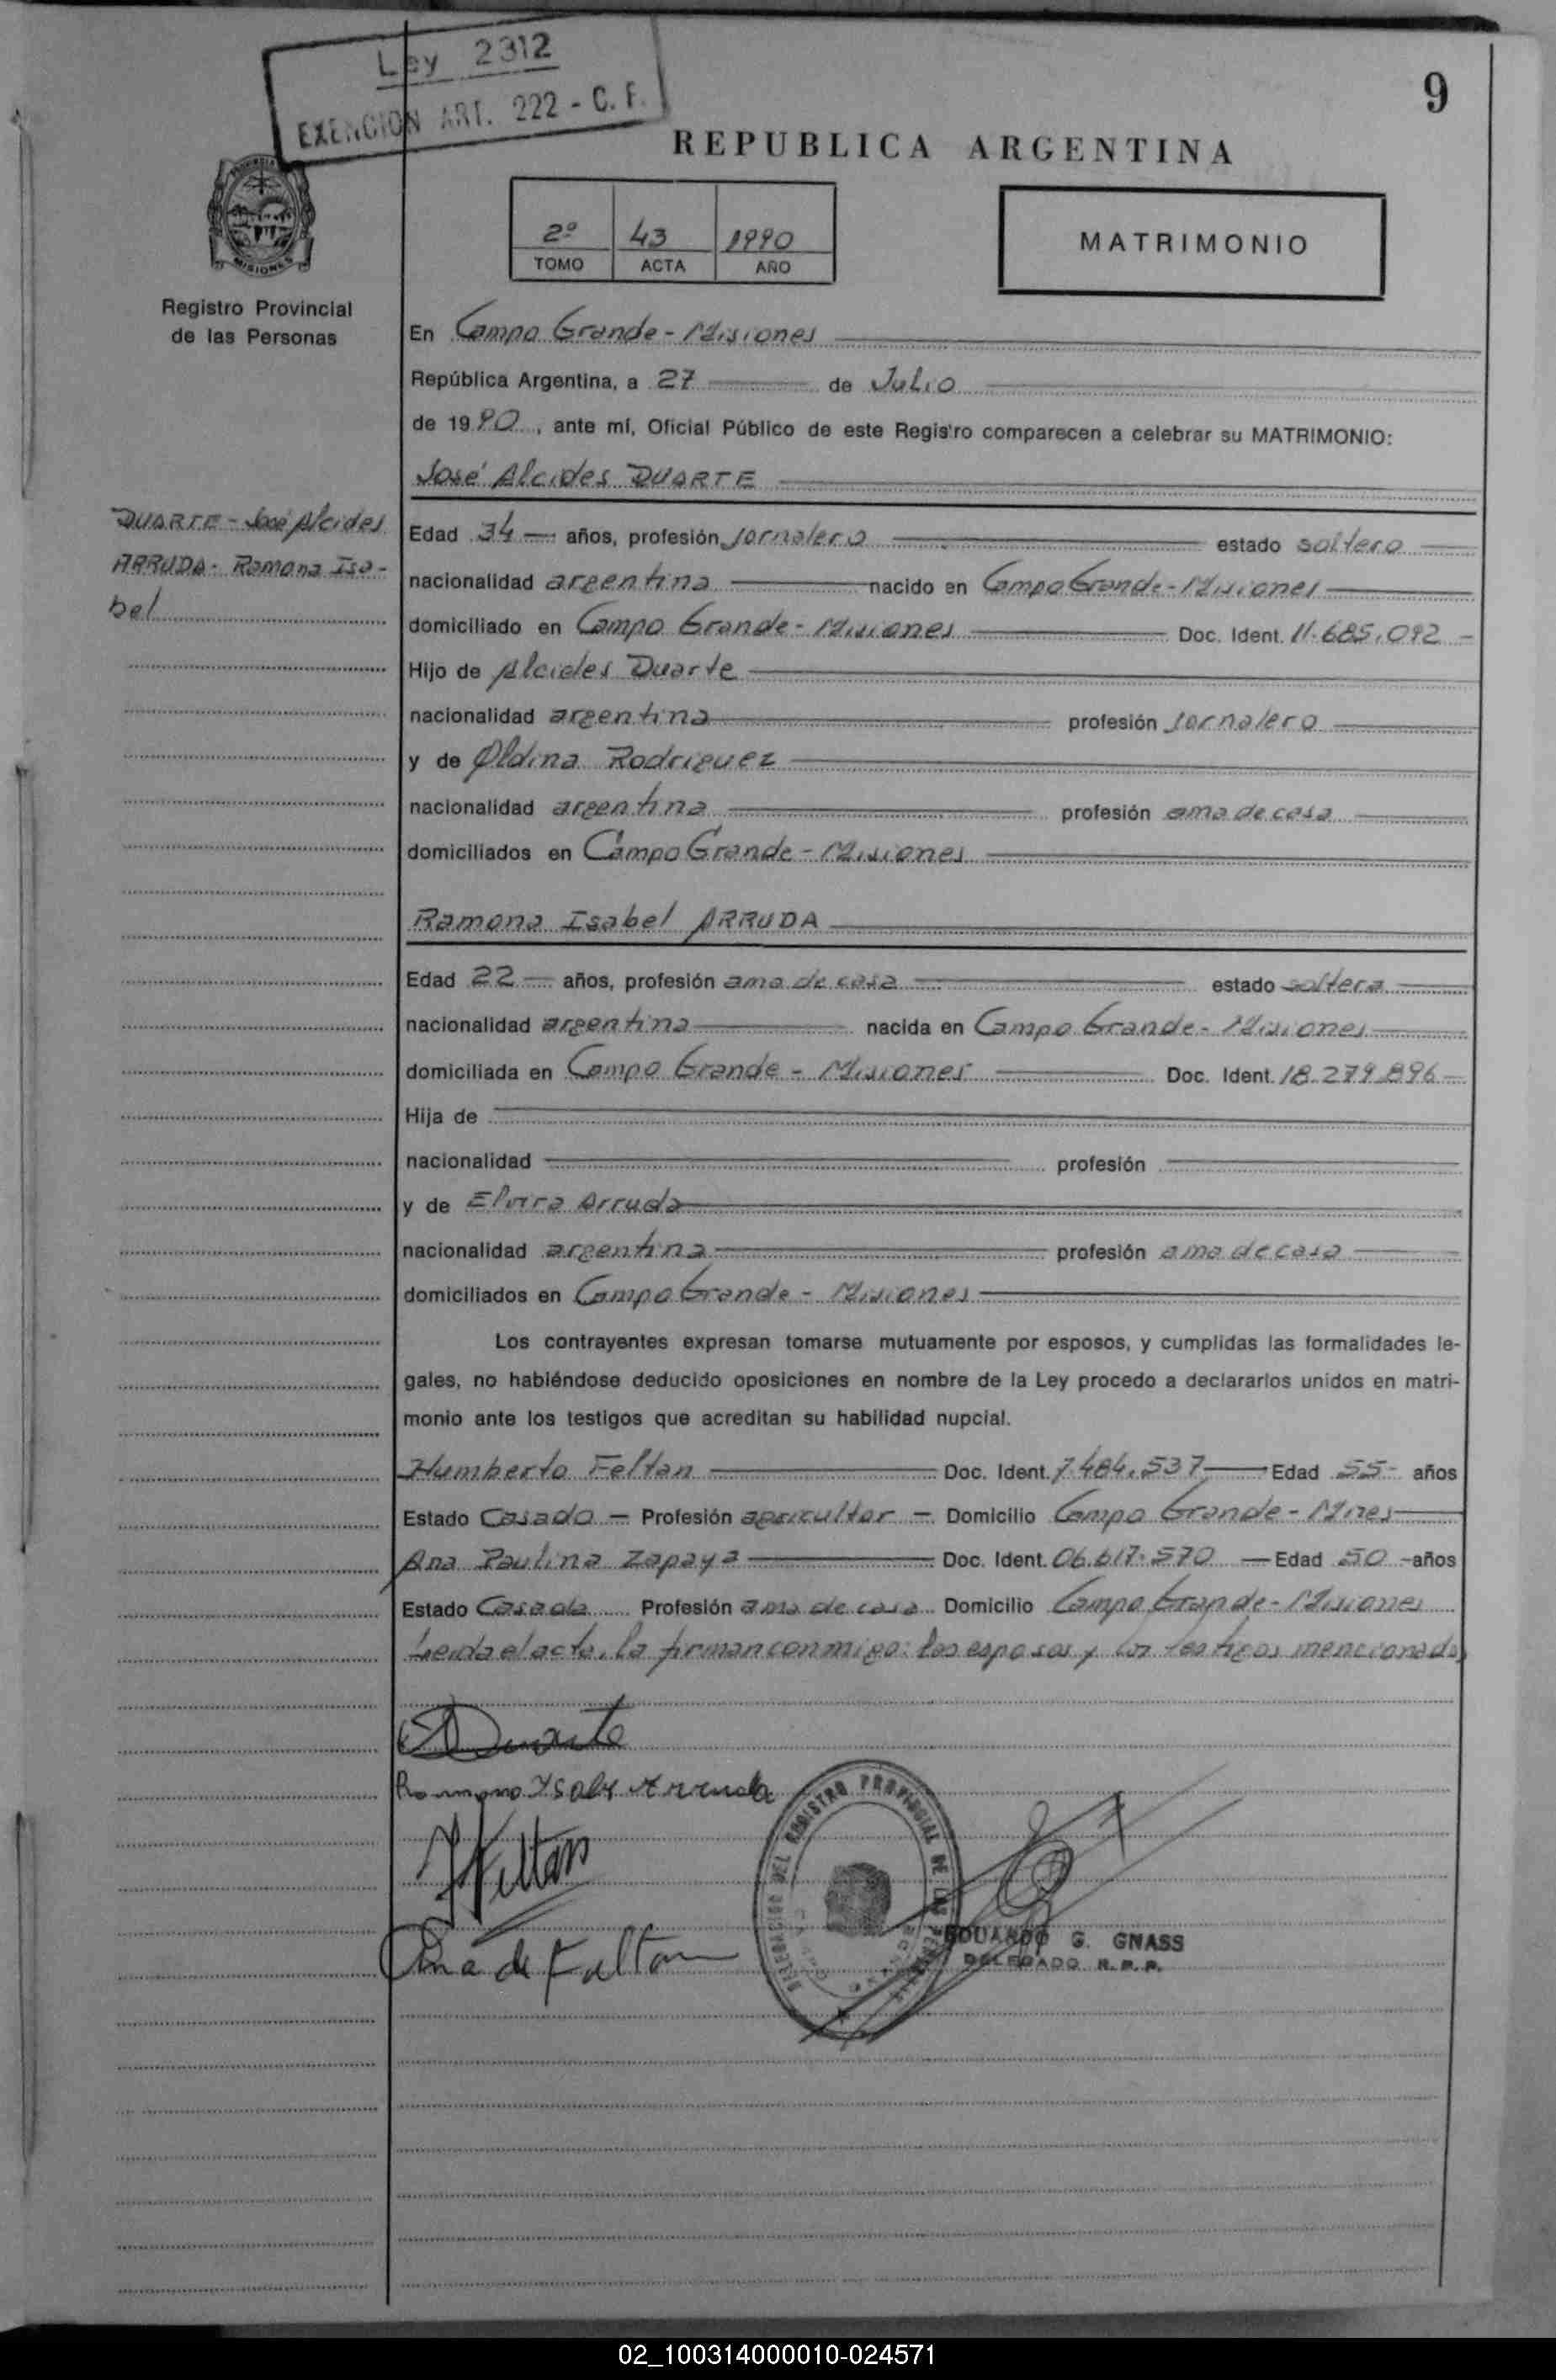 Ley 2312
EXENCION ART. 222 - C. F.
9
REPUBLICA ARGENTINA
2º 43 1990
TOMO ACTA AÑO
MATRIMONIO
MISIONES
Registro Provincial
de las Personas
En Campo Grande - Misiones
República Argentina, a 27 de Julio
de 1990, ante mí, Oficial Público de este Registro comparecen a celebrar su MATRIMONIO:
José Alcides DUARTE
DUARTE - José Alcides
ARRUDA - Ramona Isa-
bel
Edad 34 años, profesión jornalero estado soltero
nacionalidad argentina nacido en Campo Grande - Misiones
domiciliado en Campo Grande - Misiones Doc. Ident. 11.685.092
Hijo de Alcides Duarte
nacionalidad argentina profesión jornalero
y de Oldina Rodriguez
nacionalidad argentina profesión ama de casa
domiciliados en Campo Grande - Misiones
Ramona Isabel ARRUDA
Edad 22 años, profesión ama de casa estado soltera
nacionalidad argentina nacida en Campo Grande - Misiones
domiciliada en Campo Grande - Misiones Doc. Ident. 18.279.896
Hija de
nacionalidad profesión
y de Elvira Arruda
nacionalidad argentina profesión ama de casa
domiciliados en Campo Grande - Misiones
Los contrayentes expresan tomarse mutuamente por esposos, y cumplidas las formalidades le-
gales, no habiéndose deducido oposiciones en nombre de la Ley procedo a declararlos unidos en matri-
monio ante los testigos que acreditan su habilidad nupcial.
Humberto Feltan Doc. Ident. 7.484.537 Edad 55 años
Estado Casado Profesión agricultor Domicilio Campo Grande - Mnes
Ana Paulina Zapaya Doc. Ident. 06.617.570 Edad 50 años
Estado Casada Profesión ama de casa Domicilio Campo Grande - Misiones
Leida el acta, la firman conmigo: los esposos y los testigos mencionados
Duarte
Ramona Ysabel Arruda
HFeltan
Ana de Feltan
DELEGACION DEL REGISTRO PROVINCIAL DE LAS PERSONAS
EDUARDO G. GNASS
DELEGADO R. P. P.
02_100314000010-024571